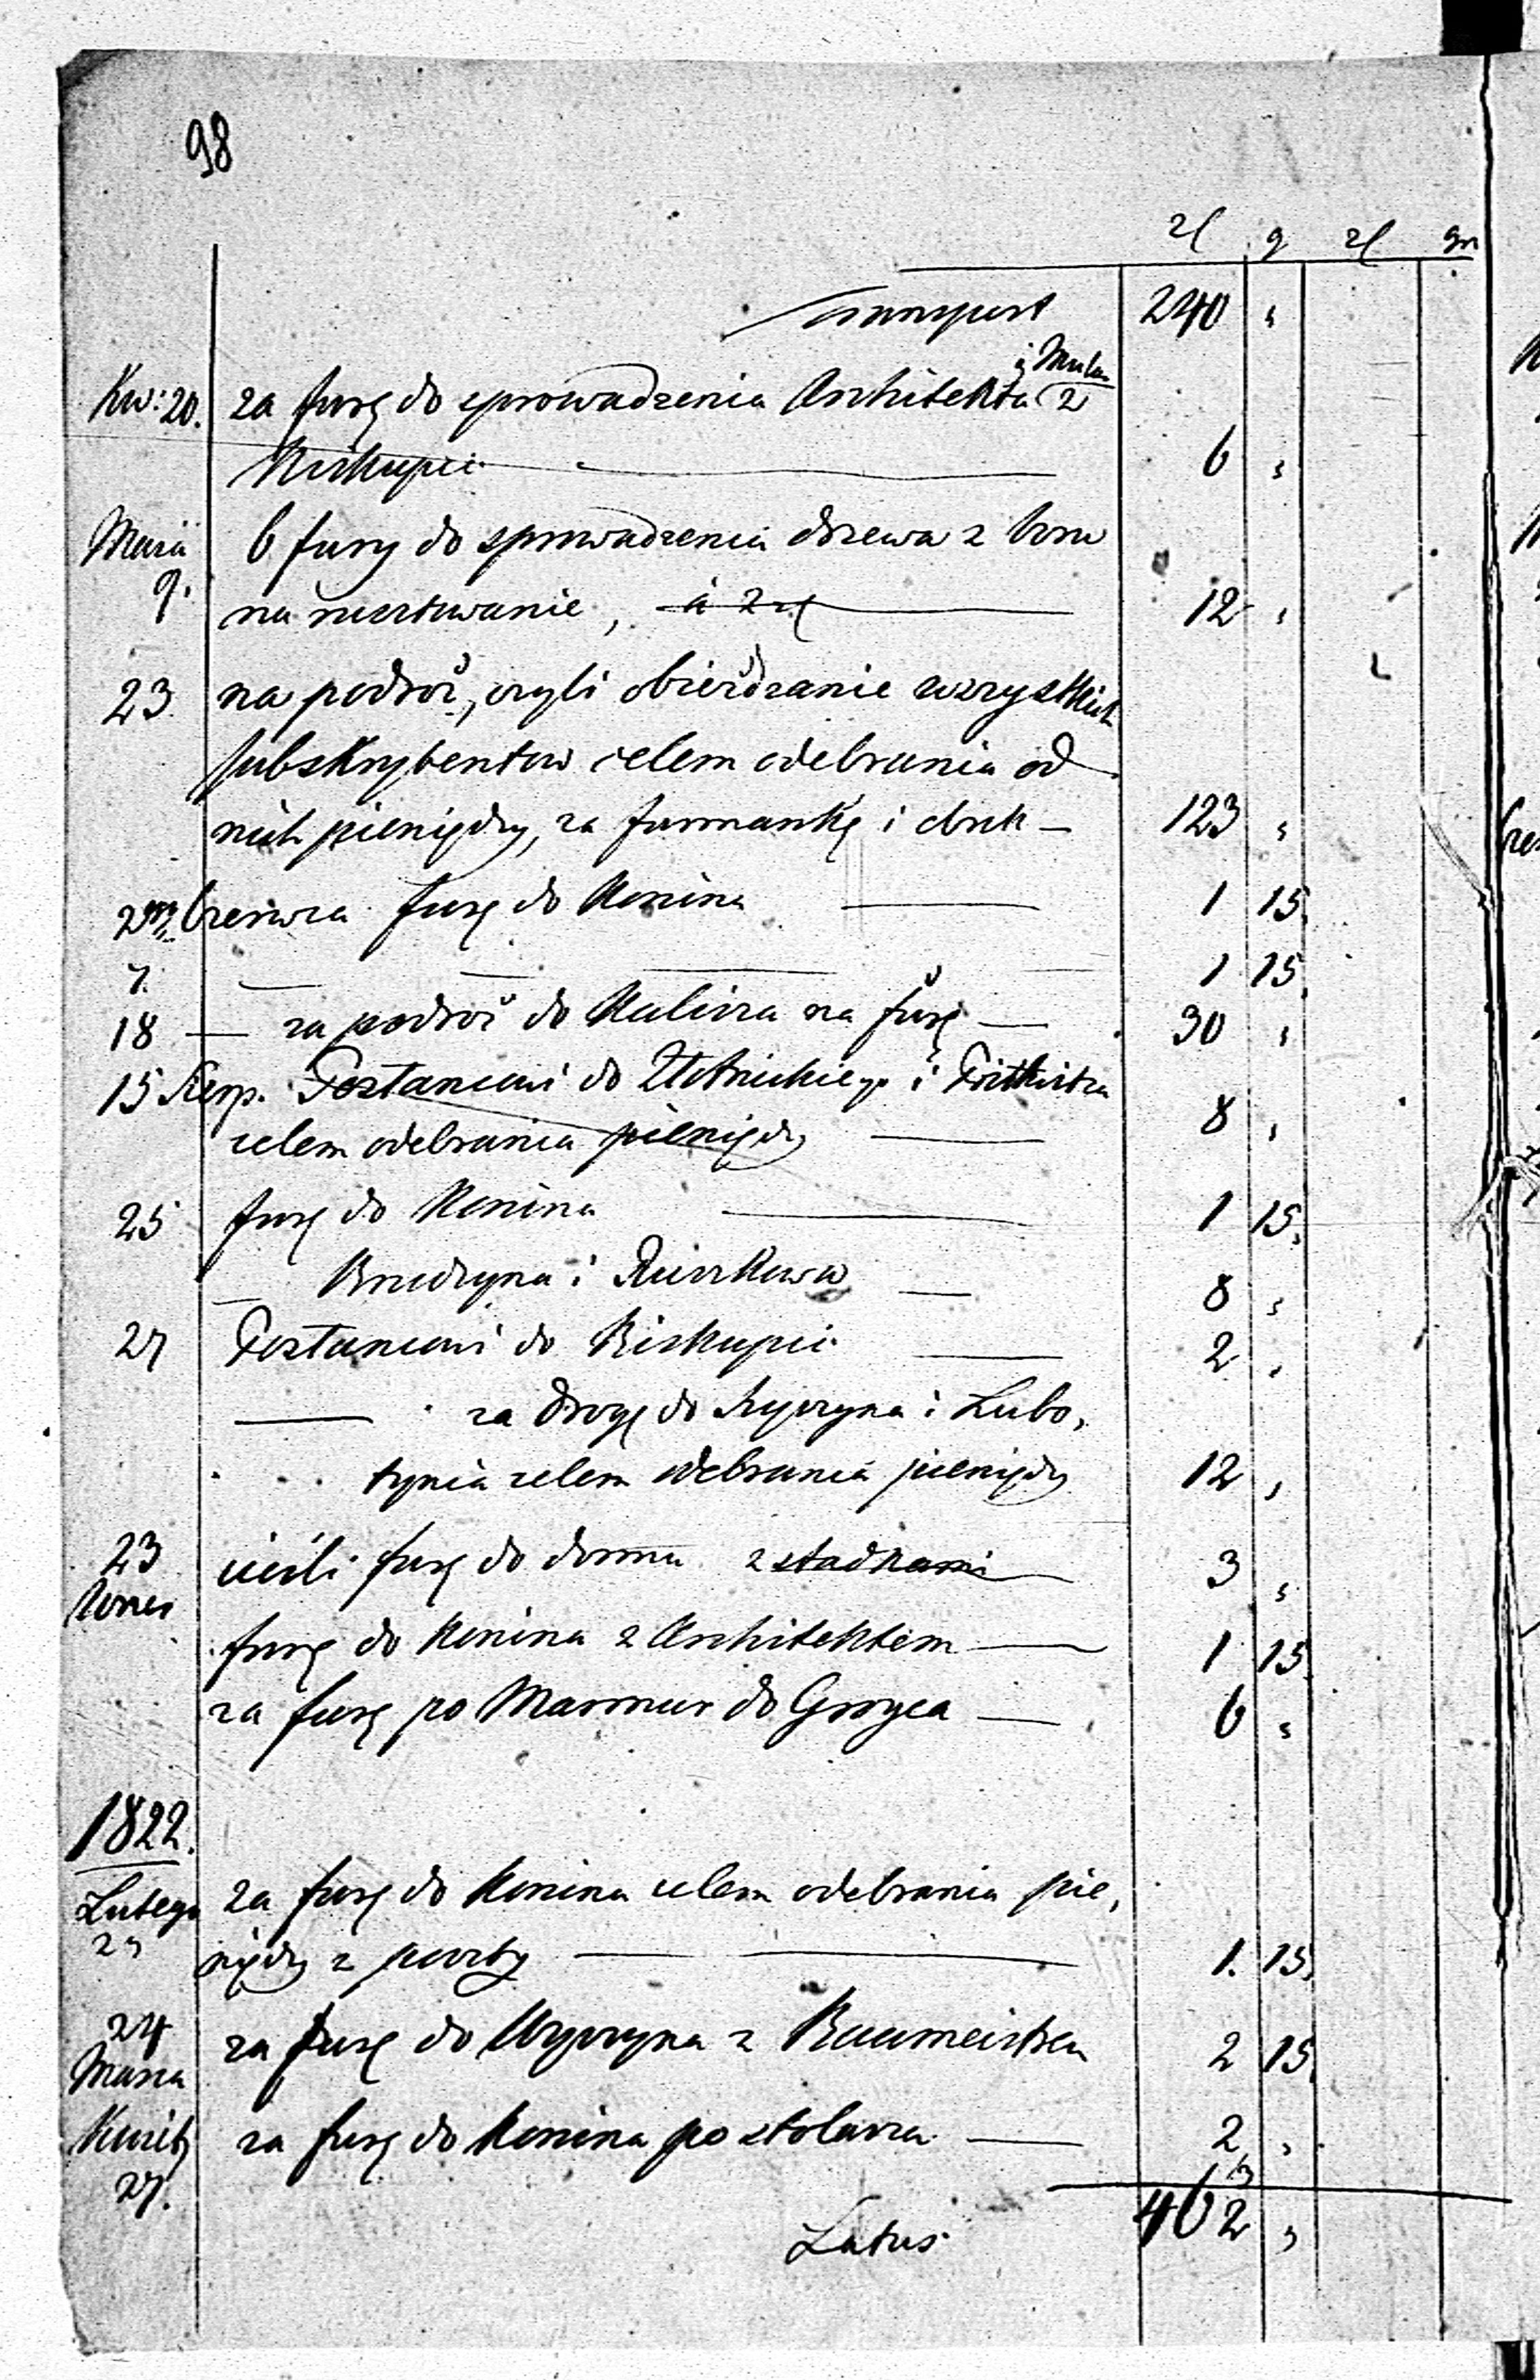 98
zł g zł gr
Transport 240 „
i Mular
Kw: 20. za furę do sprowadzenia Architekta z
Biskupic 6 „
Maia 6 fury do sprowadzenia drzewa z boru
9. na rusztowanie, á 2 zł 12 „
23 na podroż, czyli obieżdzanie wszystkich
subskrybentow celem odebrania od
nich pieniędzy, za furmankę i obrok — 123 „
2go Czerwca furę do Konina — 1 15.
7. — — — 1 15
18 — za podroż do Kalisza na furę — 30 „
15 Sierp. Posłancowi do Złotnickiego i
celem odebrania pieniędzy — 8 „
25 furę do Konina — 1 15.
— Brudzyna i — 8 „
27 Posłancowi do Biskupic — 2 „
— za drogę do Szyszyna i Lubo,
tynia celem odebrania pieniędzy 12 „
23 cieśli furę do domu z statkami 3 „
Wrześ
furę do Konina z Architektem — 1 15
za furę po Marmur do — 6 „
1822.
Lutego za furę do Konina celem odebrania pie,
23 niędzy z poczty — 1. 15
24 za furę do Szyszyna z Baumeistra 2 15
Marca
Kwiet. za furę do Konina po stolarza — 2 „
27.
Latus 462 „